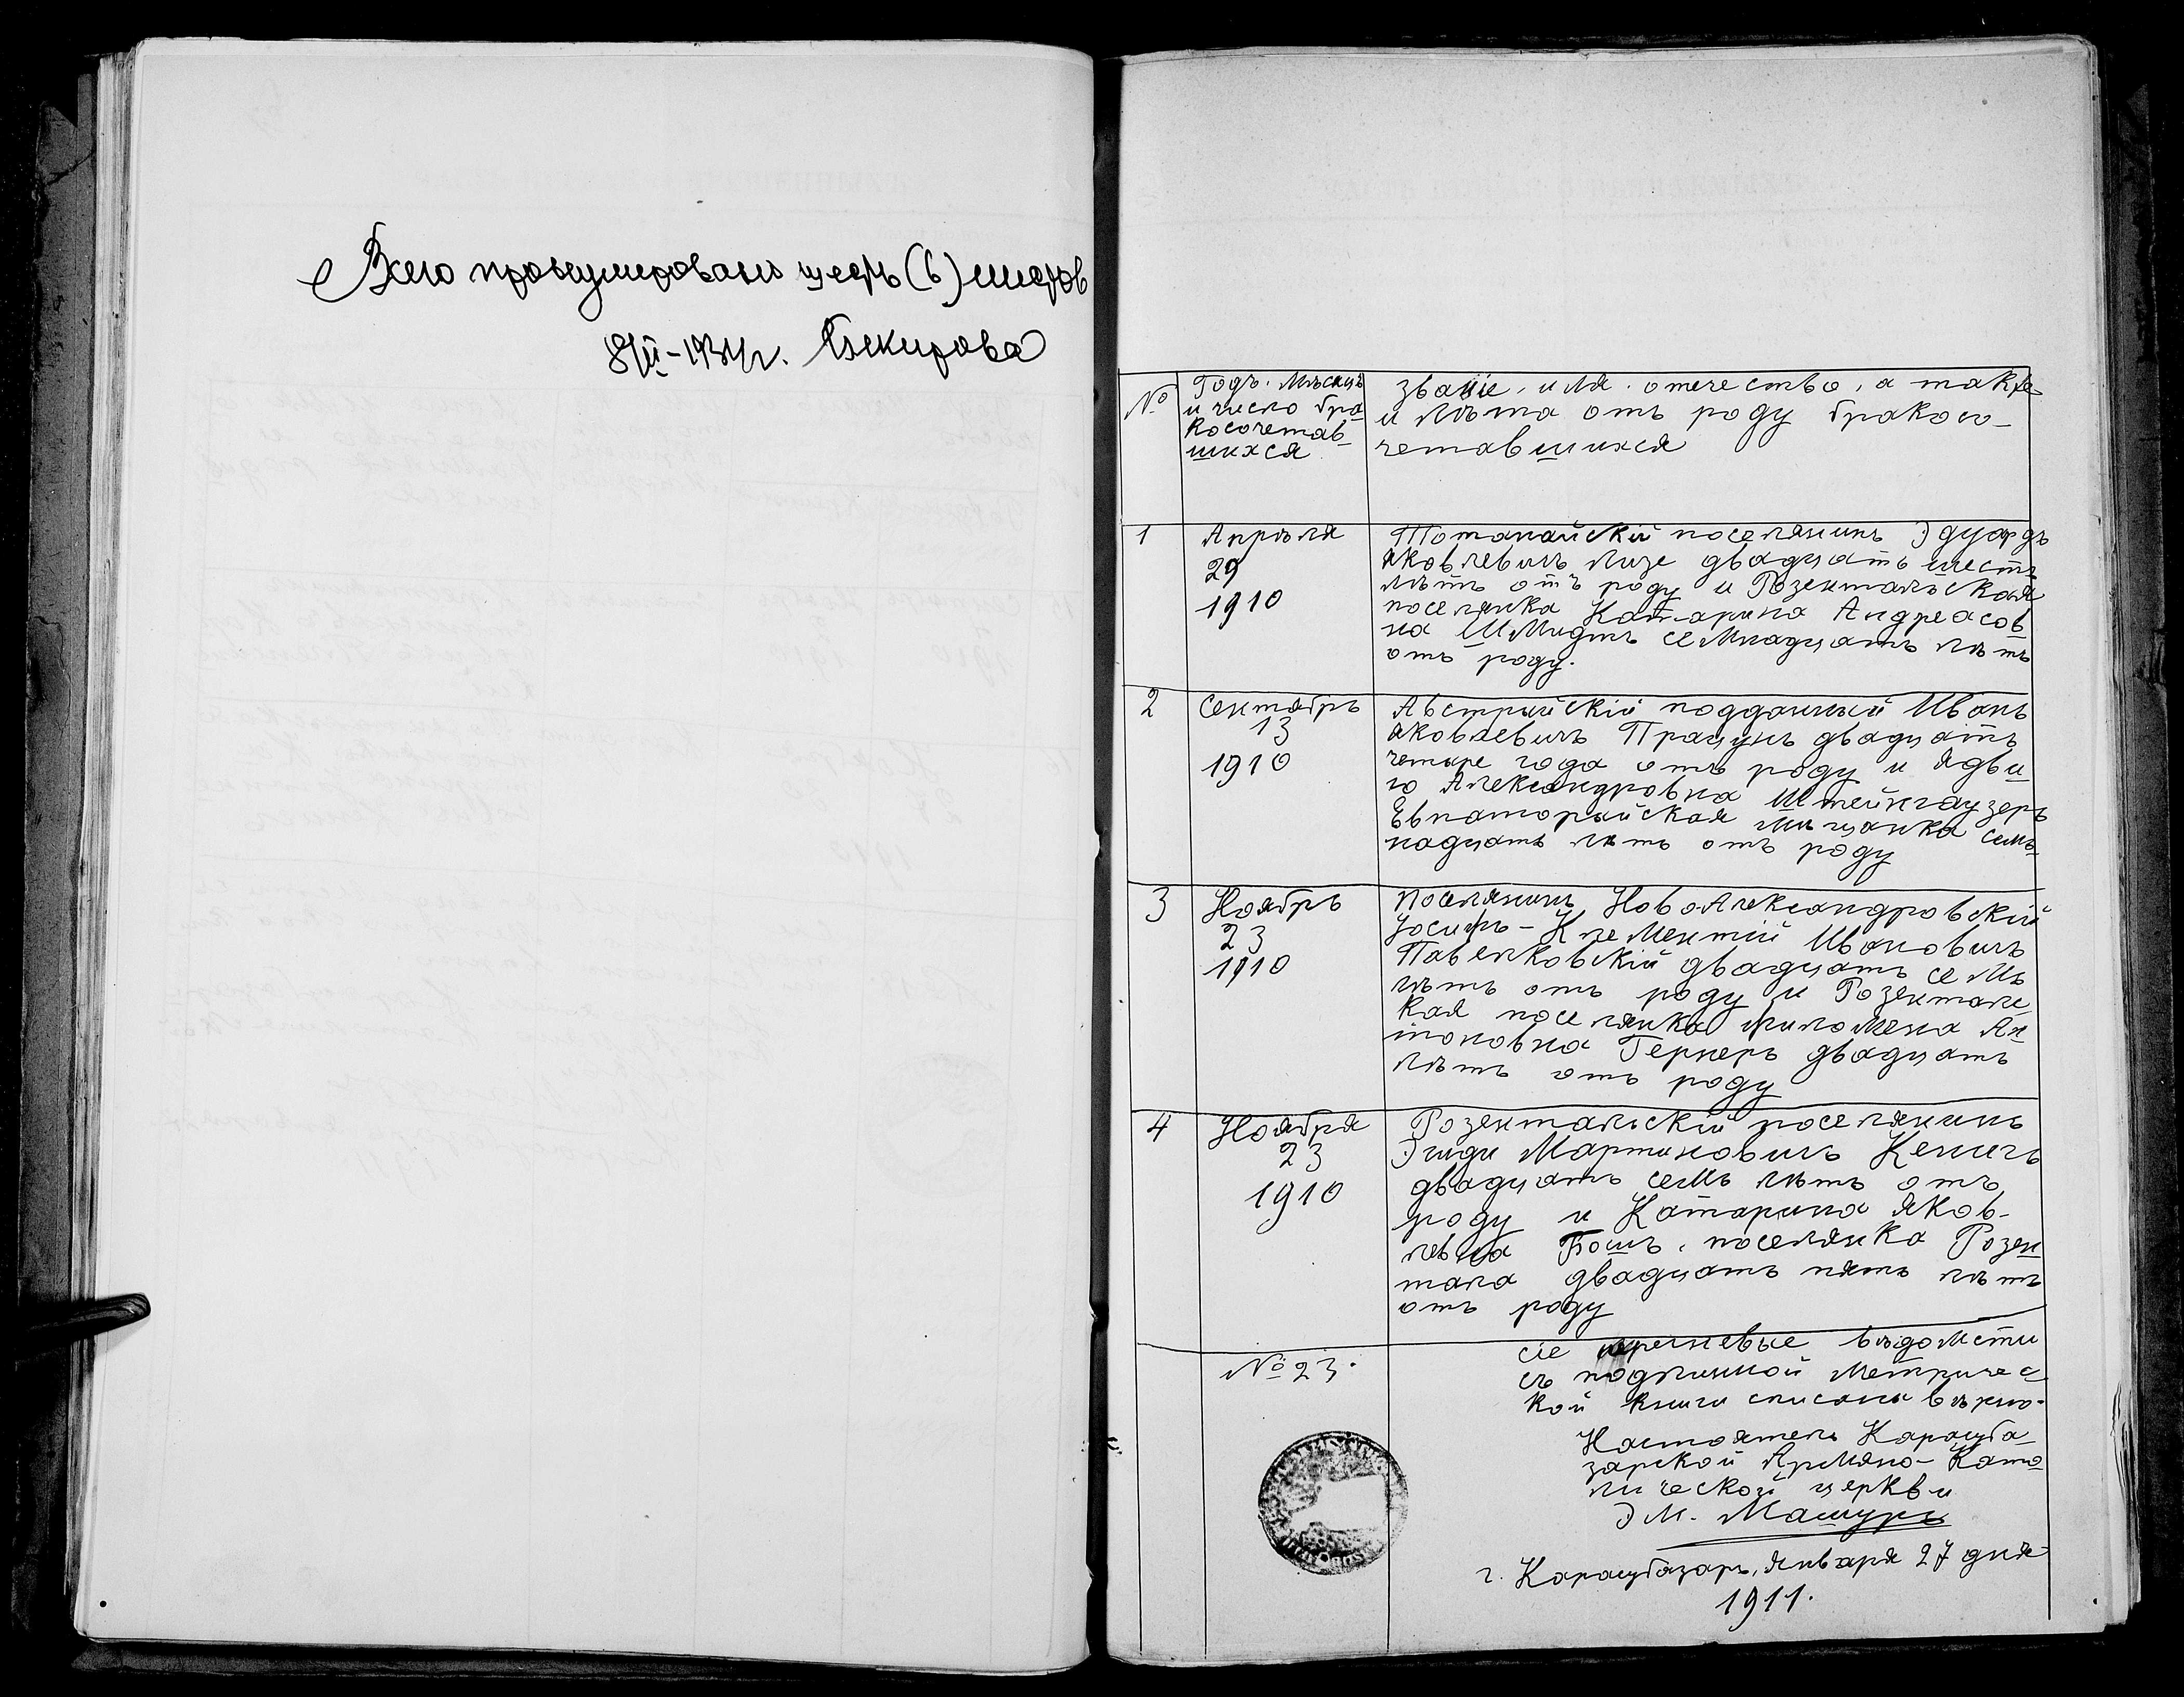 Всего пронумеровано шесть (6) листов
8/II-1934г. Бекирова
№
Годъ. Мѣсяцъ
и число бра
косочетав-
шихся
званіе, имя. отечество, а также
и лѣта отъ роду бракосо-
четавшихся
1
Апрѣля
29
1910
Тотанайскій поселянинъ Эдуардъ
Яковлевичъ Лизе двадцать шесть
лѣтъ отъ роду и Розентальская
поселянка Катарина Андреасов
на Шмидтъ семнадцать лѣтъ
отъ роду.
2
Сентябрь
13
1910
Австрийскій подданный Иванъ
Яковлевичъ Працунъ двадцать
четыре года отъ роду и Ядви
га Александровна Штейнгаузеръ
Евпаторийская мѣщанка семь
надцать лѣтъ отъ роду
3
Ноябрь
23
1910
Поселянинъ НовоАлександровскій
Іосифъ-Клементий Ивановичъ
Павелковскій двадцать семь
лѣтъ отъ роду и Розенталь
кая поселянка Филомена Ан
тоновна Гернеръ двадцать
лѣтъ отъ роду
4
Ноября
23
1910
Розентальскій поселянинъ
Эгиди Мартиновичъ Кенигъ
двадцать семь лѣтъ отъ
роду и Катарина Яков-
левна Бошъ, поселянка Розен
тала двадцать пять лѣтъ
отъ роду
№ 23.
сіе перечневые вѣдомсти
съ подлинной метричес
кой книги списаны вѣрно.
Настоятель Карасуба
зарской Армяно-Като
лической церкви
Э М. Машуръ
г. Карасубазаръ, Января 27 дня
1911.